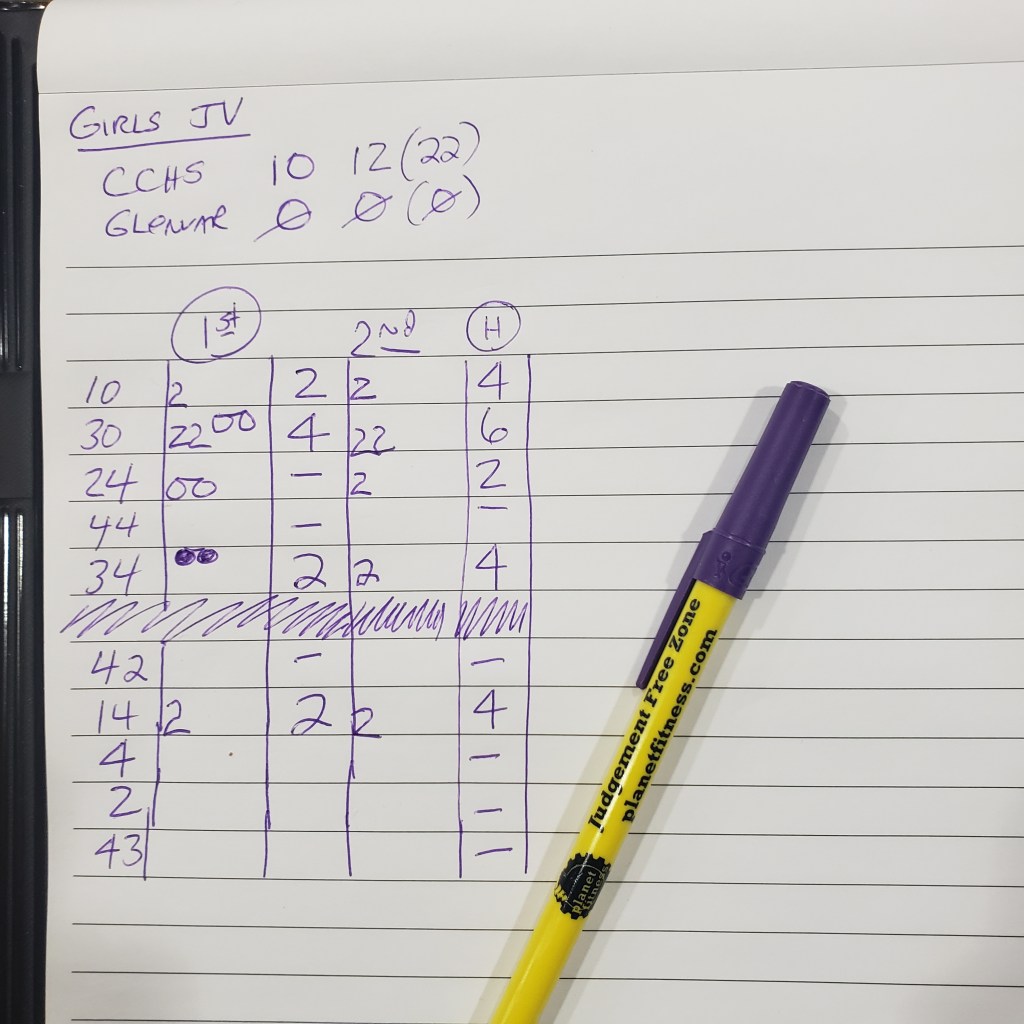 GIRLS JV
CCHS 10 12 (22)
GLENVAR 0 0 (0)
1st 2nd H
10 2 2 2 4
30 22 00 4 22 6
24 00 — 2 2
44 — —
34 2 2 4
42 — —
14 2 2 2 4
4 —
2 —
43 —
Judgement Free Zone
planetfitness.com
planet
fitness